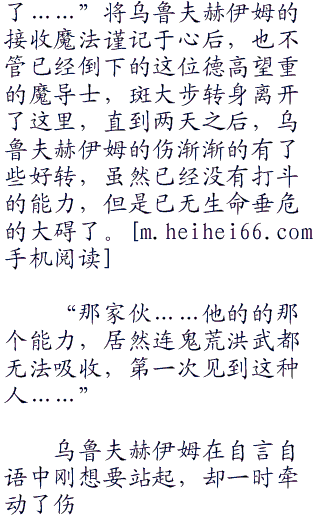 了……”将乌鲁夫赫伊姆的
接收魔法谨记于心后，也不
管已经倒下的这位德高望重
的魔导士，斑大步转身离开
了这里，直到两天之后，乌
鲁夫赫伊姆的伤渐渐的有了
些好转，虽然已经没有打斗
的能力，但是已无生命垂危
的大碍了。[m.heihei66.com
手机阅读]
“那家伙……他的的那
个能力，居然连鬼荒洪武都
无法吸收，第一次见到这种
人……”
乌鲁夫赫伊姆在自言自
语中刚想要站起，却一时牵
动了伤